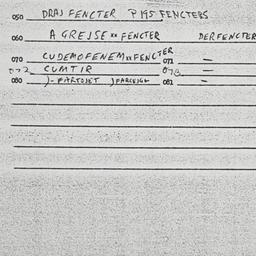 050 DRAJ FENCTER P145 FENCTERS
060 A GREJSE xx FENCTER DERFENCTER
070 CUDEMOFENEM xx FENCTER 071 —
072 CUMTIR 078 —
080 J-FARTOJET JFARCEJGH 081 —